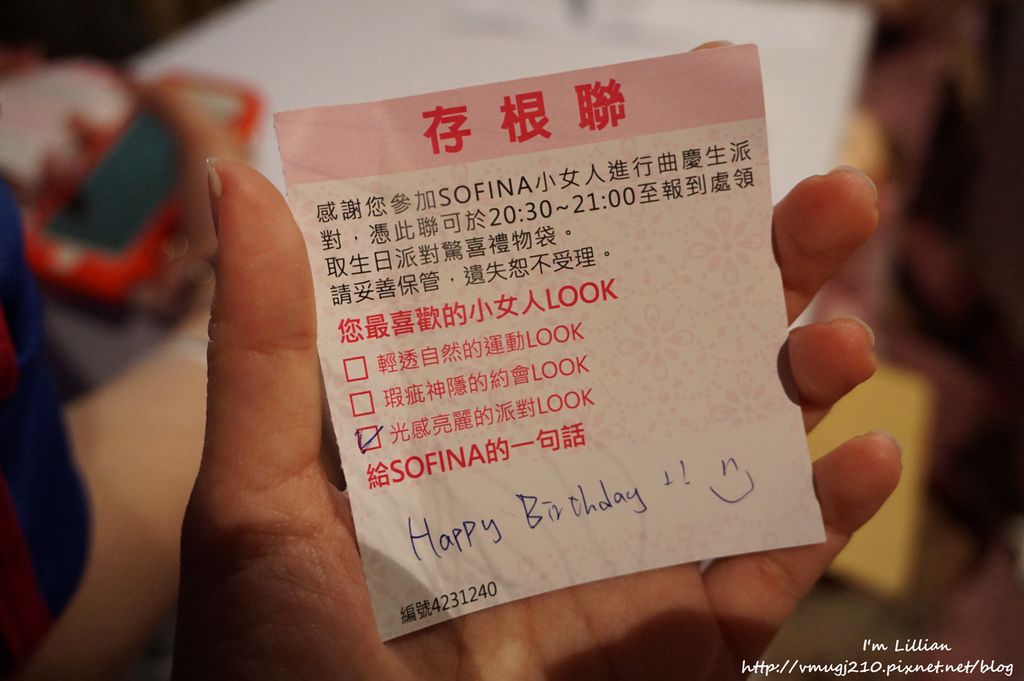 存根聯
感謝您參加SOFINA小女人進行曲慶生派
對，憑此聯可於20:30~21:00至報到處領
取生日派對驚喜禮物袋。
請妥善保管，遺失恕不受理。
您最喜歡的小女人LOOK
輕透自然的運動LOOK
瑕疵神隱的約會LOOK
光感亮麗的派對LOOK
給SOFINA的一句話
Happy Birthday !!
編號4231240
I'm Lillian
http://vmugj210.pixnet.net/blog